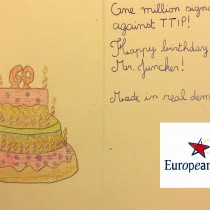 60
One million signa
against TTIP!
Happy birthday
Mr. Juncker!
Made in real dem
European